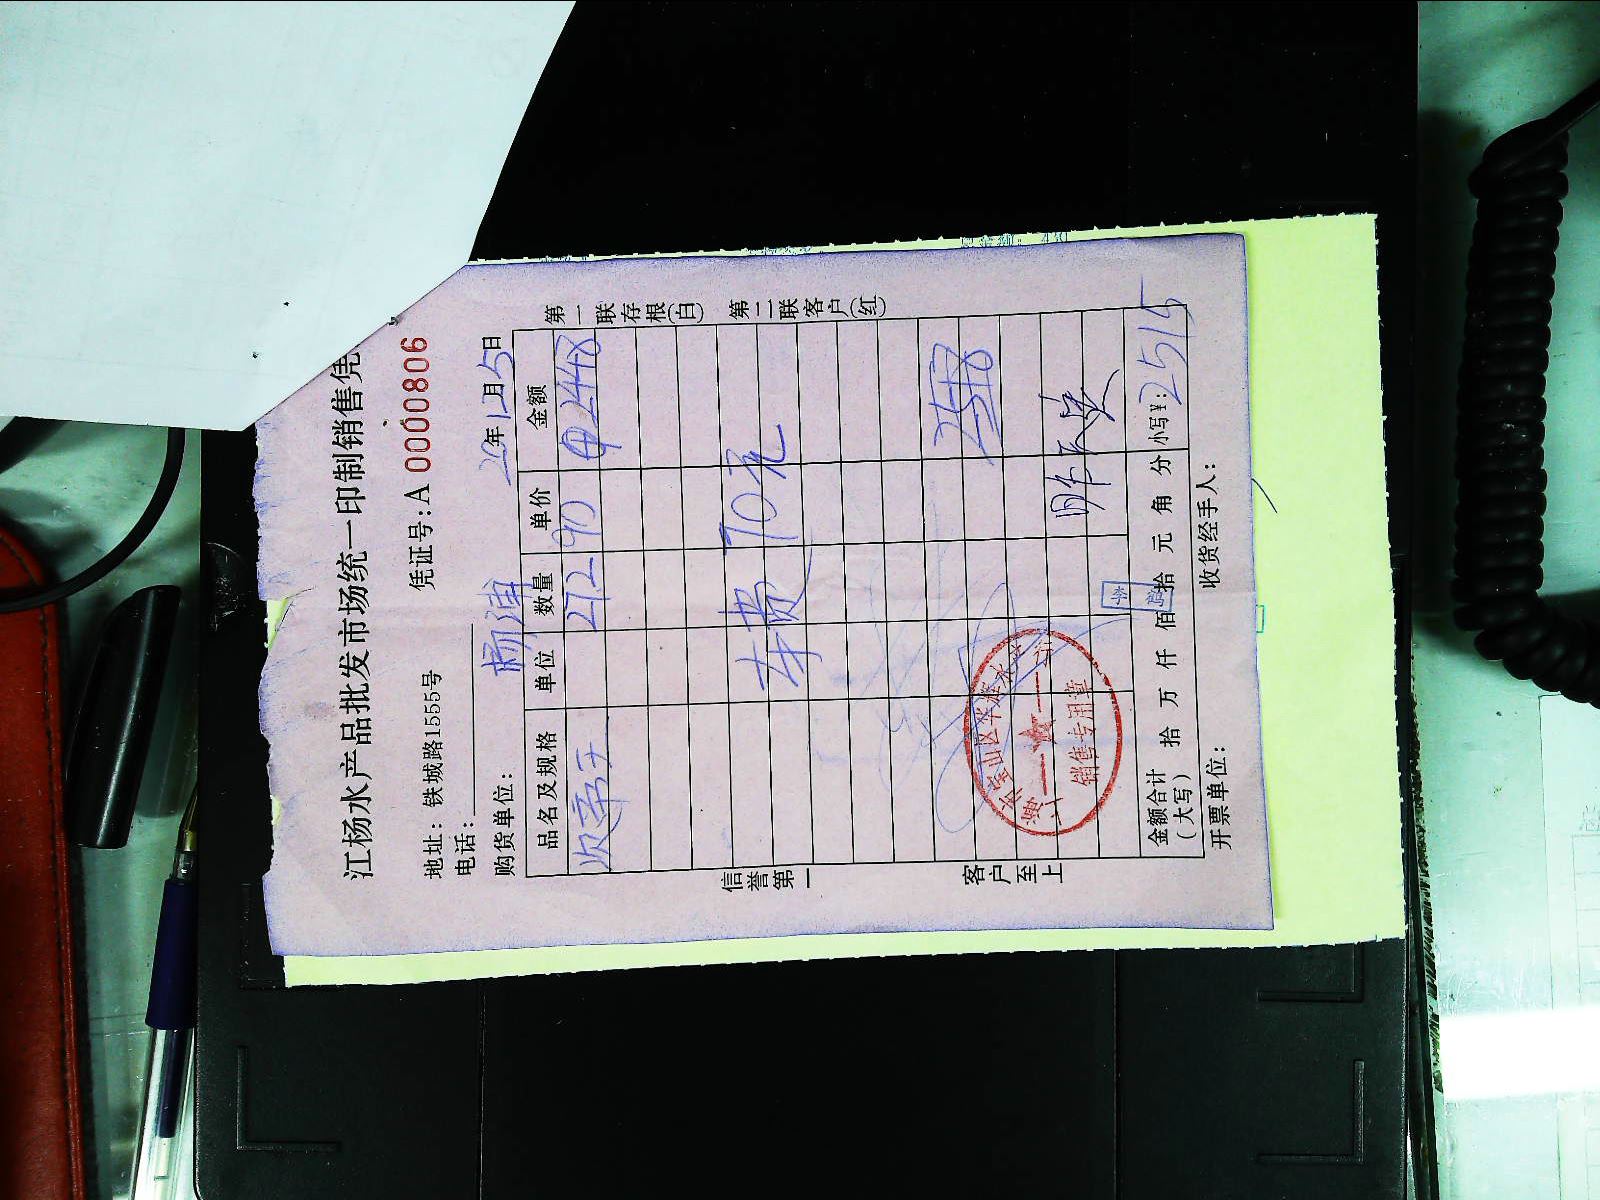 江杨水产品批发市场统一印制销售凭
地址：铁城路1555号 凭证号：A 0000806
电话：
购货单位： 杨浦 20年12月5日
品名及规格 单位 数量 单价 金额
272 90 2448
车费 70元
小写¥：2515
金额合计（大写） 拾 万 仟 佰 拾 元 角 分
开票单位： 收货经手人：
第一联存根(白) 第二联客户(红)
信誉第一
客户至上
销售专用章